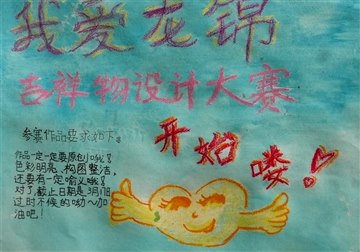 我爱龙锦
吉祥物设计大赛
开始喽!
参赛作品要求如下:
作品一定一定要原创小哦!
色彩明亮、构图整洁,
还要有一定喻义哦!
对了,截止日期是3月17日
过时不候的呦~加
油吧!